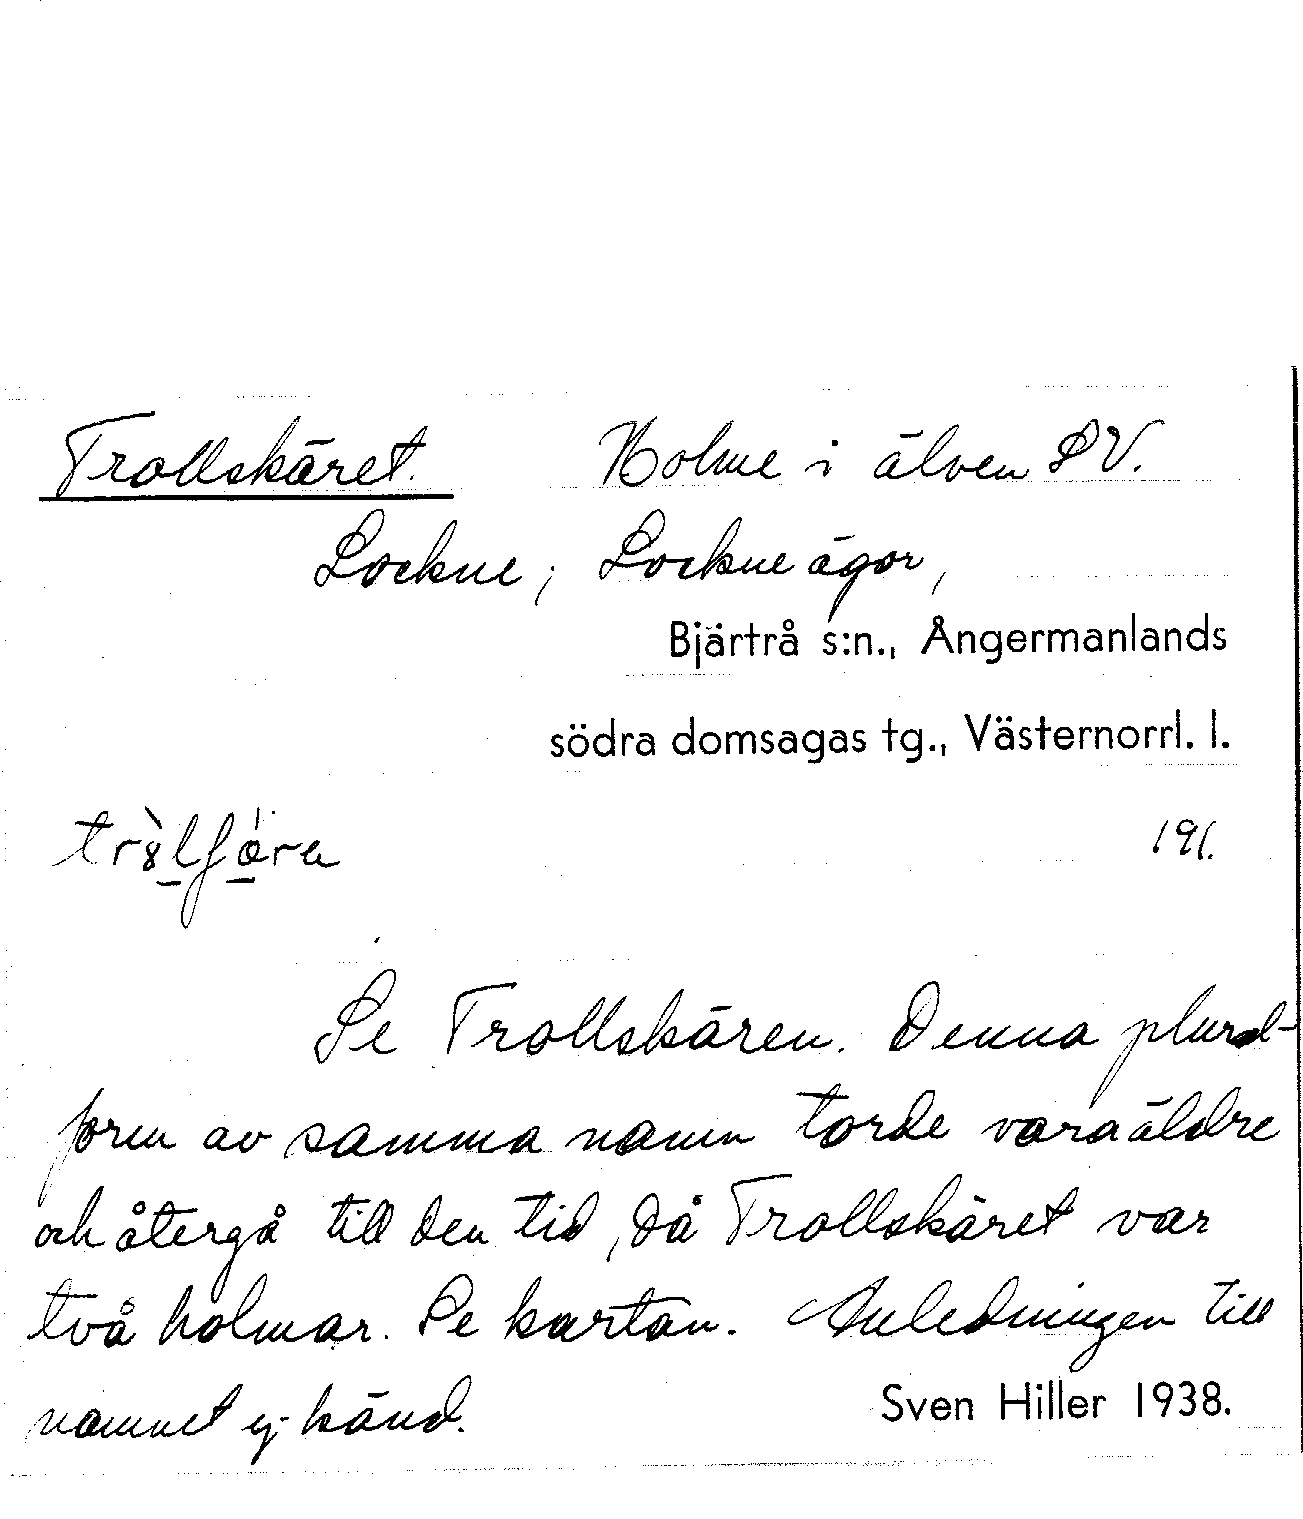 Trollskäret. Holme i älven SV.
Lockne; Lockne ägor,
Bjärtrå s:n., Ångermanlands
södra domsagas tg., Västernorrl. l.
191.
Se Trollskären. Denna plural-
form av samma namn torde vara äldre
och återgå till den tid, då Trollskäret var
två holmar. Se kartan. Anledningen till
namnet ej känd. Sven Hiller 1938.